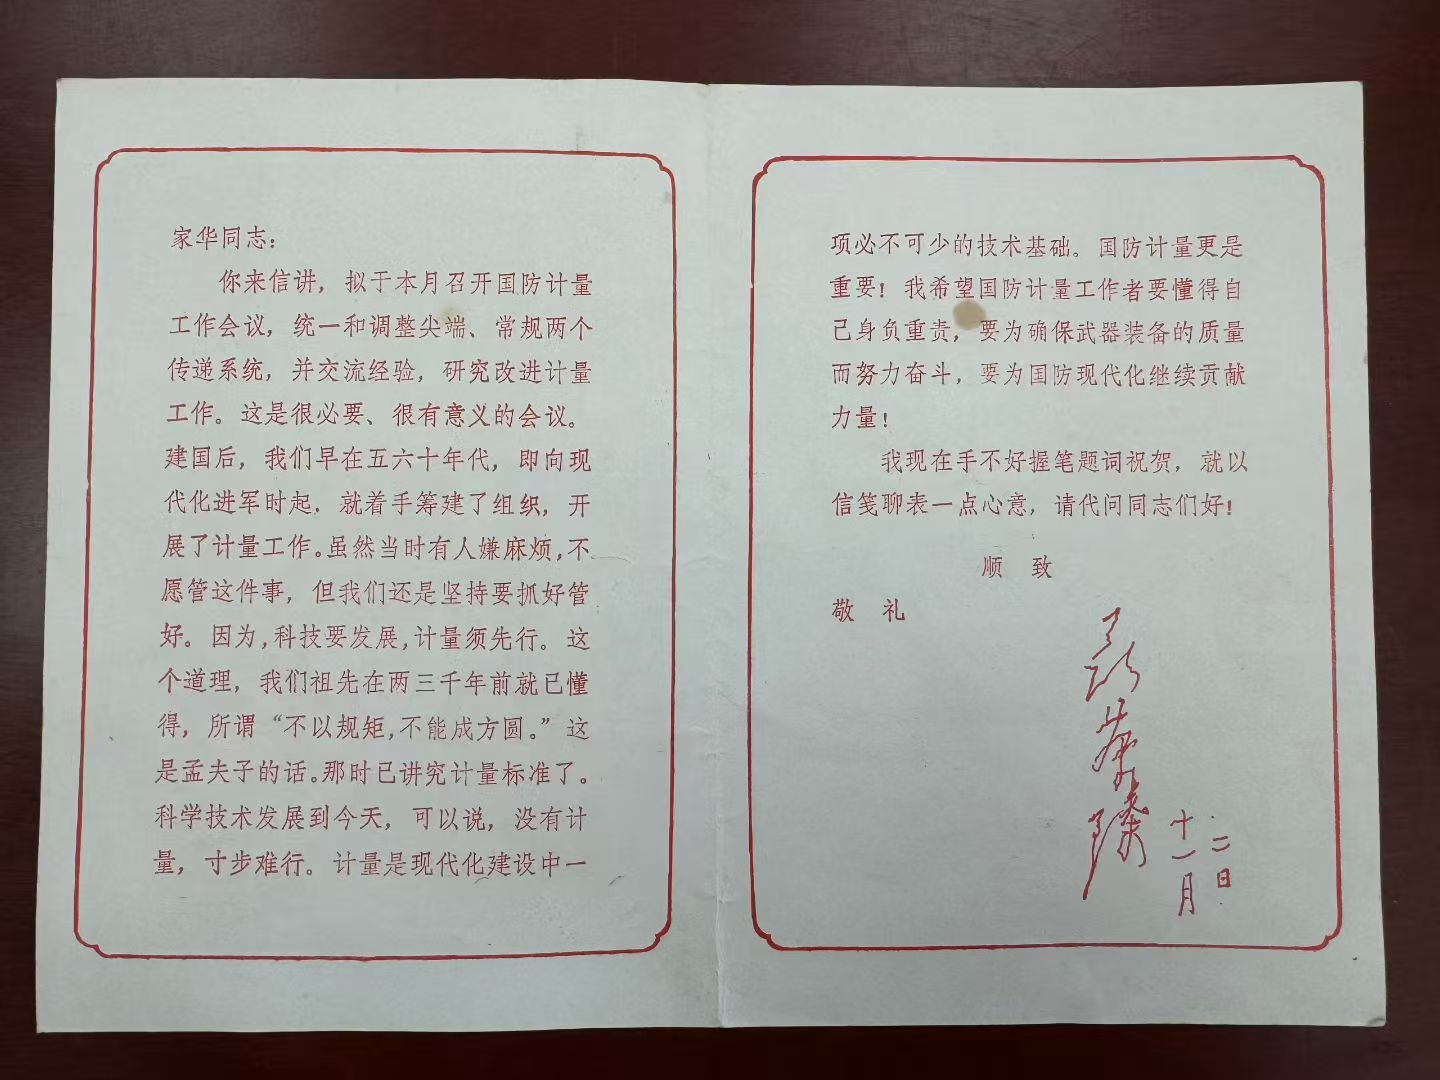 家华同志：
你来信讲，拟于本月召开国防计量
工作会议，统一和调整尖端、常规两个
传递系统，并交流经验，研究改进计量
工作。这是很必要、很有意义的会议。
建国后，我们早在五六十年代，即向现
代化进军时起，就着手筹建了组织，开
展了计量工作。虽然当时有人嫌麻烦，不
愿管这件事，但我们还是坚持要抓好管
好。因为，科技要发展，计量须先行。这
个道理，我们祖先在两三千年前就已懂
得，所谓“不以规矩，不能成方圆。”这
是孟夫子的话。那时已讲究计量标准了。
科学技术发展到今天，可以说，没有计
量，寸步难行。计量是现代化建设中一
项必不可少的技术基础。国防计量更是
重要！我希望国防计量工作者要懂得自
己身负重责，要为确保武器装备的质量
而努力奋斗，要为国防现代化继续贡献
力量！
我现在手不好握笔题词祝贺，就以
信笺聊表一点心意，请代问同志们好！
顺 致
敬 礼
聂荣臻
十一月
二日